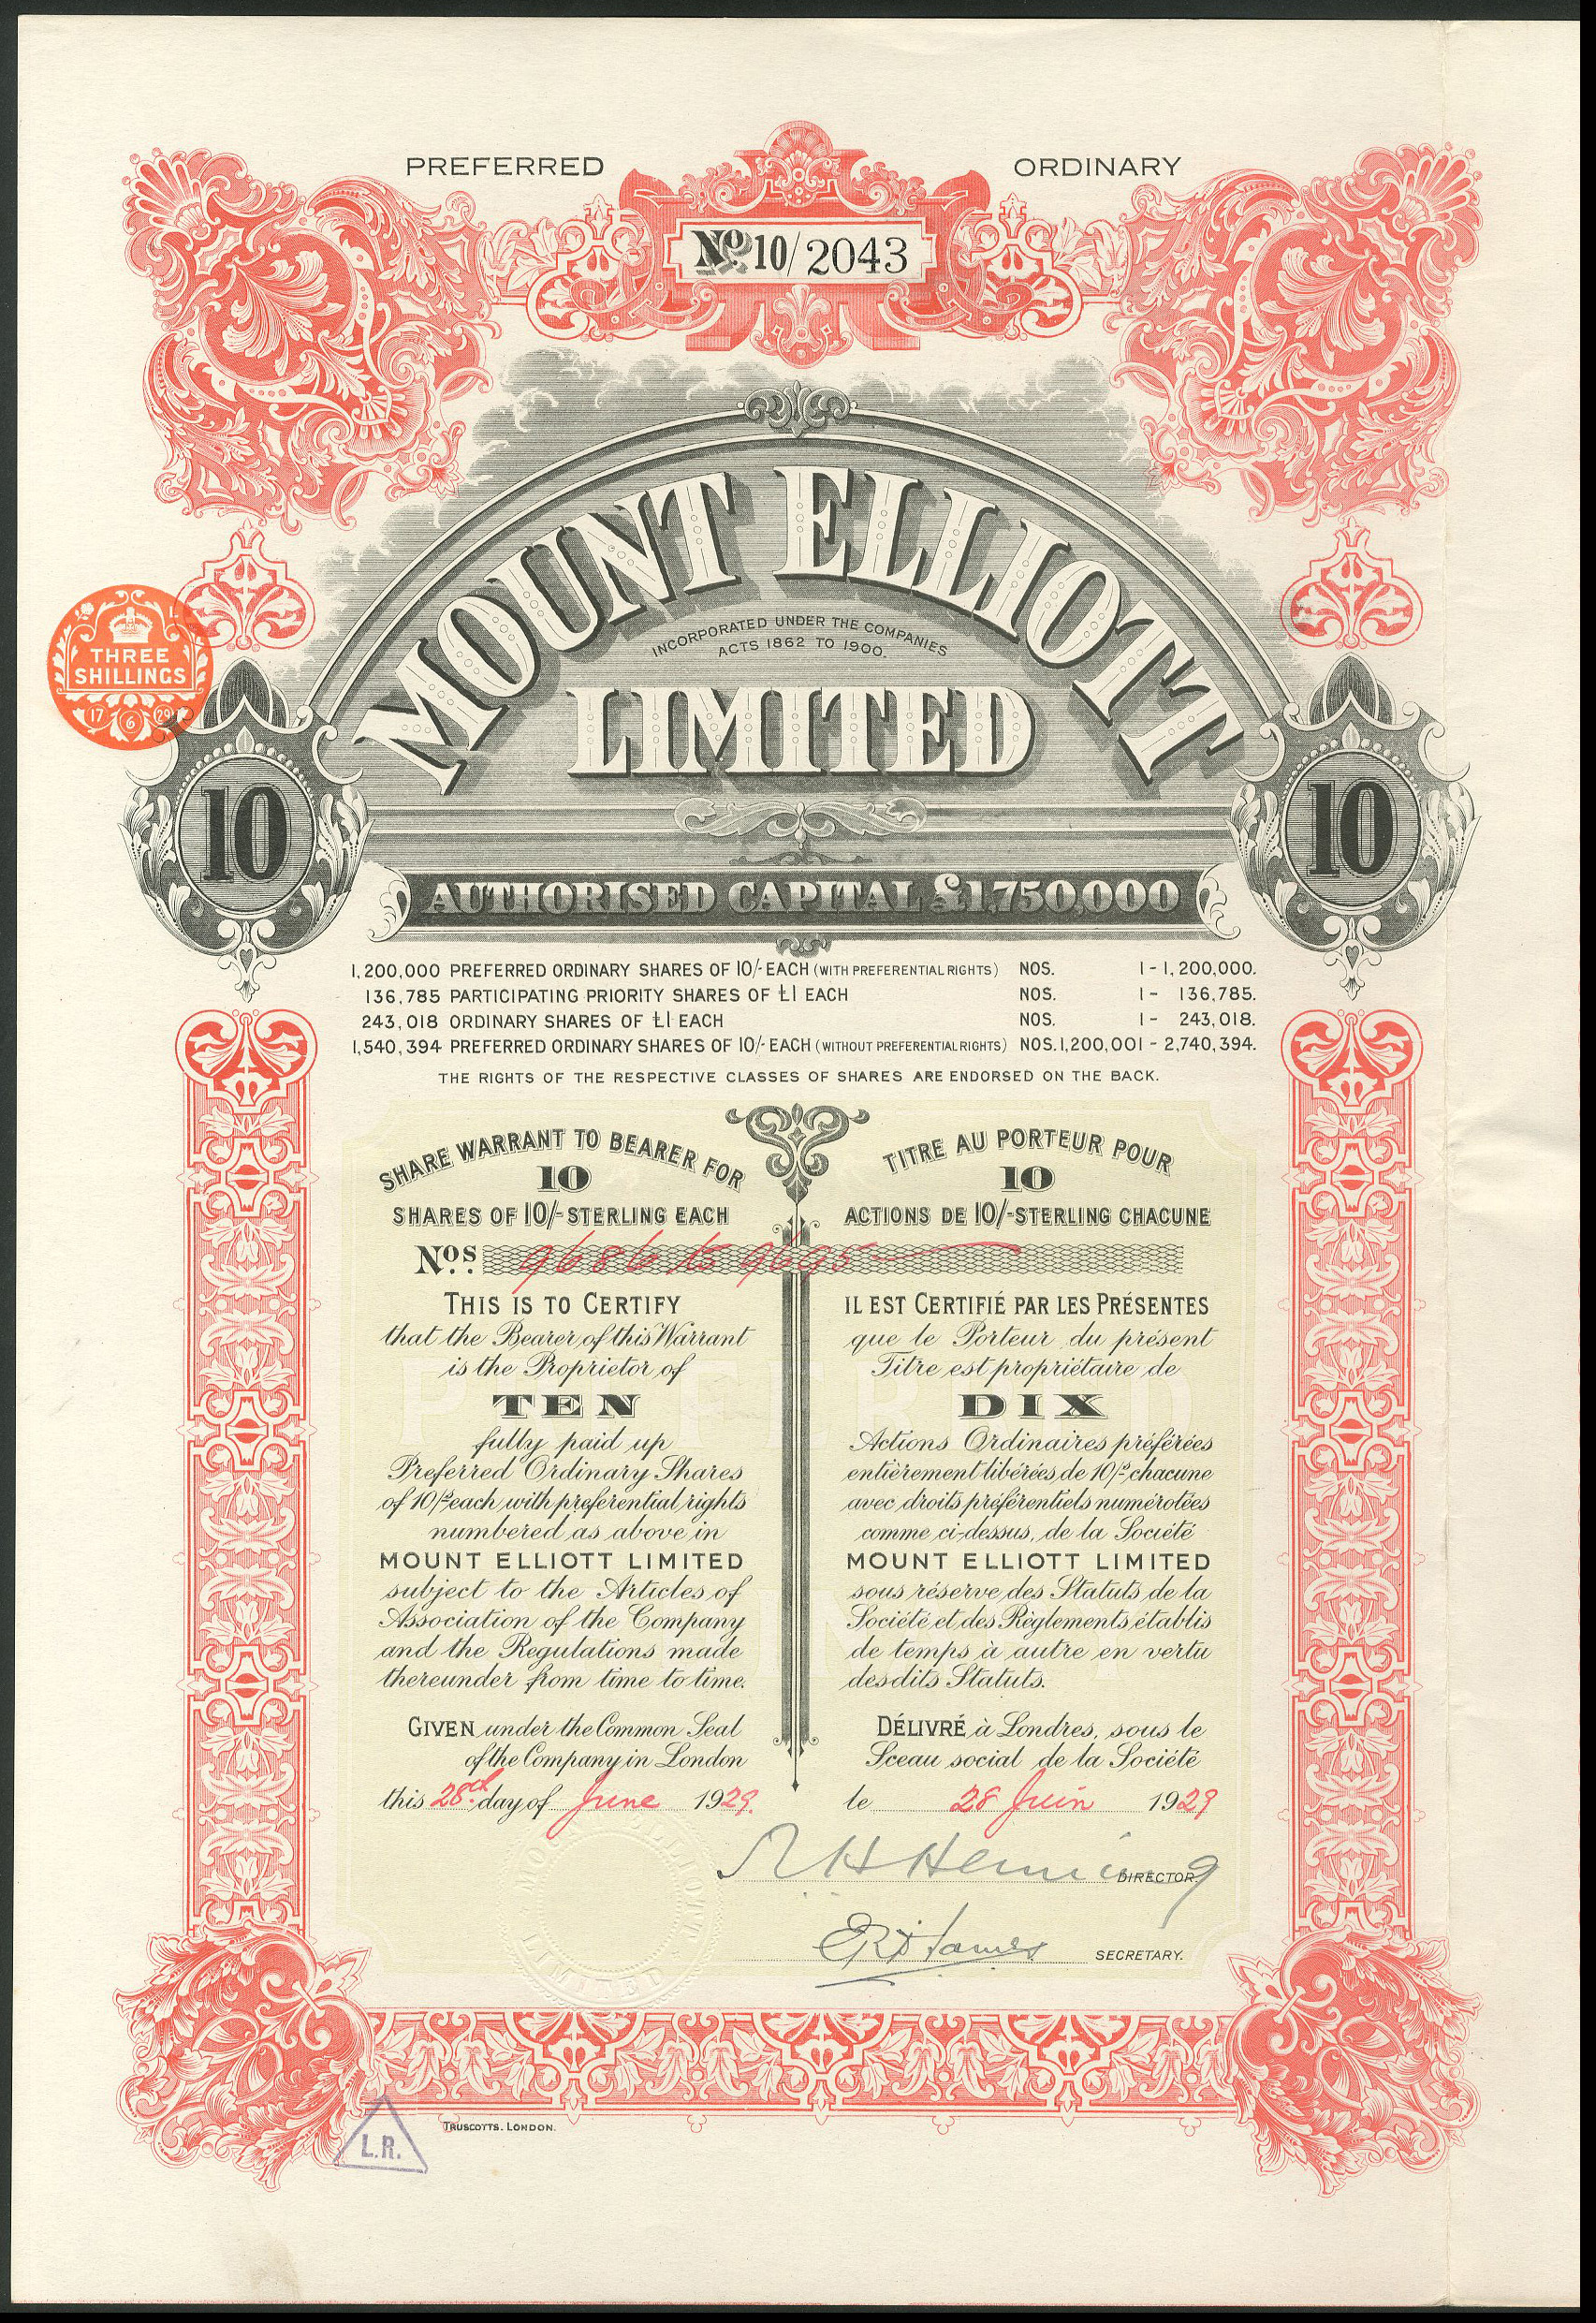 PREFERRED ORDINARY
No. 10/2043
MOUNT ELLIOTT
INCORPORATED UNDER THE COMPANIES
ACTS 1862 TO 1900.
LIMITED
THREE
SHILLINGS
17 6 29
10 10
AUTHORISED CAPITAL £1,750,000
1,200,000 PREFERRED ORDINARY SHARES OF 10/- EACH (WITH PREFERENTIAL RIGHTS) NOS. 1 - 1,200,000.
136,785 PARTICIPATING PRIORITY SHARES OF £1 EACH NOS. 1 - 136,785.
243,018 ORDINARY SHARES OF £1 EACH NOS. 1 - 243,018.
1,540,394 PREFERRED ORDINARY SHARES OF 10/- EACH (WITHOUT PREFERENTIAL RIGHTS) NOS. 1,200,001 - 2,740,394.
THE RIGHTS OF THE RESPECTIVE CLASSES OF SHARES ARE ENDORSED ON THE BACK.
SHARE WARRANT TO BEARER FOR
10
SHARES OF 10/- STERLING EACH
Nos. 9686 to 9695
THIS IS TO CERTIFY
that the Bearer of this Warrant
is the Proprietor of
TEN
fully paid up
Preferred Ordinary Shares
of 10/- each with preferential rights
numbered as above in
MOUNT ELLIOTT LIMITED
subject to the Articles of
Association of the Company
and the Regulations made
thereunder from time to time.
GIVEN under the Common Seal
of the Company in London
this 28th day of June 1929.
TITRE AU PORTEUR POUR
10
ACTIONS DE 10/- STERLING CHACUNE
IL EST CERTIFIÉ PAR LES PRÉSENTES
que le Porteur du présent
Titre est propriétaire de
DIX
Actions Ordinaires préférées
entièrement libérées de 10/- chacune
avec droits préférentiels numérotées
comme ci-dessus, de la Société
MOUNT ELLIOTT LIMITED
sous réserve des Statuts de la
Société et des Règlements établis
de temps à autre en vertu
desdits Statuts.
DÉLIVRÉ à Londres, sous le
Sceau social de la Société
le 28 Juin 1929
DIRECTOR.
SECRETARY.
LIMITED
TRUSCOTTS. LONDON.
L.R.